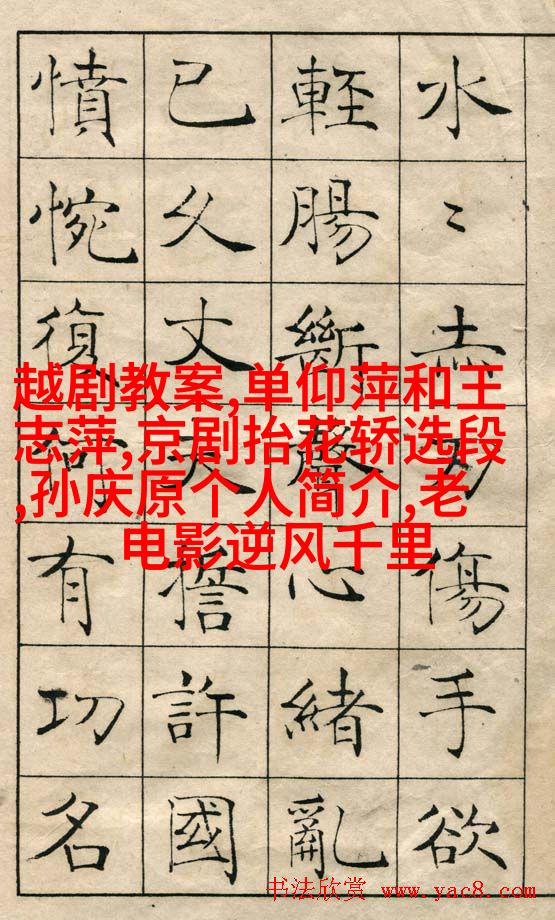 水〻赤刃傷手欲
輕腸斷聲心緒亂
已久丈夫誓許國
憤惋復何有功名
越剧教案,单仰萍和王
志萍,京剧抬花轿选段
,孙庆原个人简介,老
电影逆风千里
书法欣赏 www.yac8.com